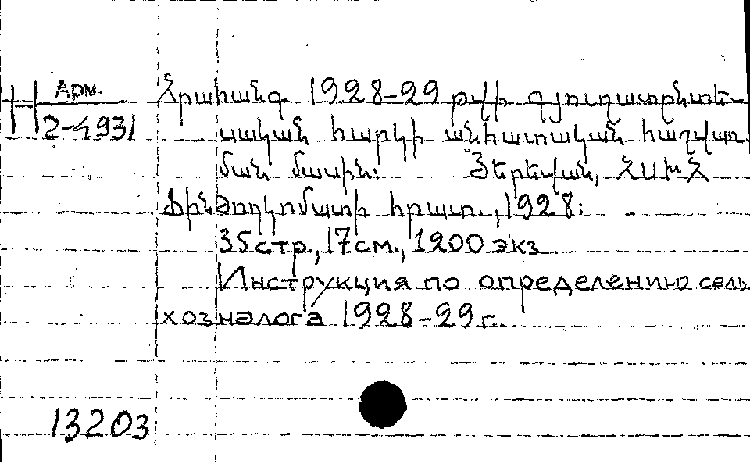 Арм.
2-4931
Հրահանգ 1928-29 թվի գյուղատընտե-
սական հարկի անհատական հաշվառ
ման մասին: Յերեվան, ՀՍԽՀ
Ֆինժողկոմատի հրատ., 1928:
35стр., 17см., 1200 экз
Инструкция по определению сель
хозналога 1928-29 г.
13203